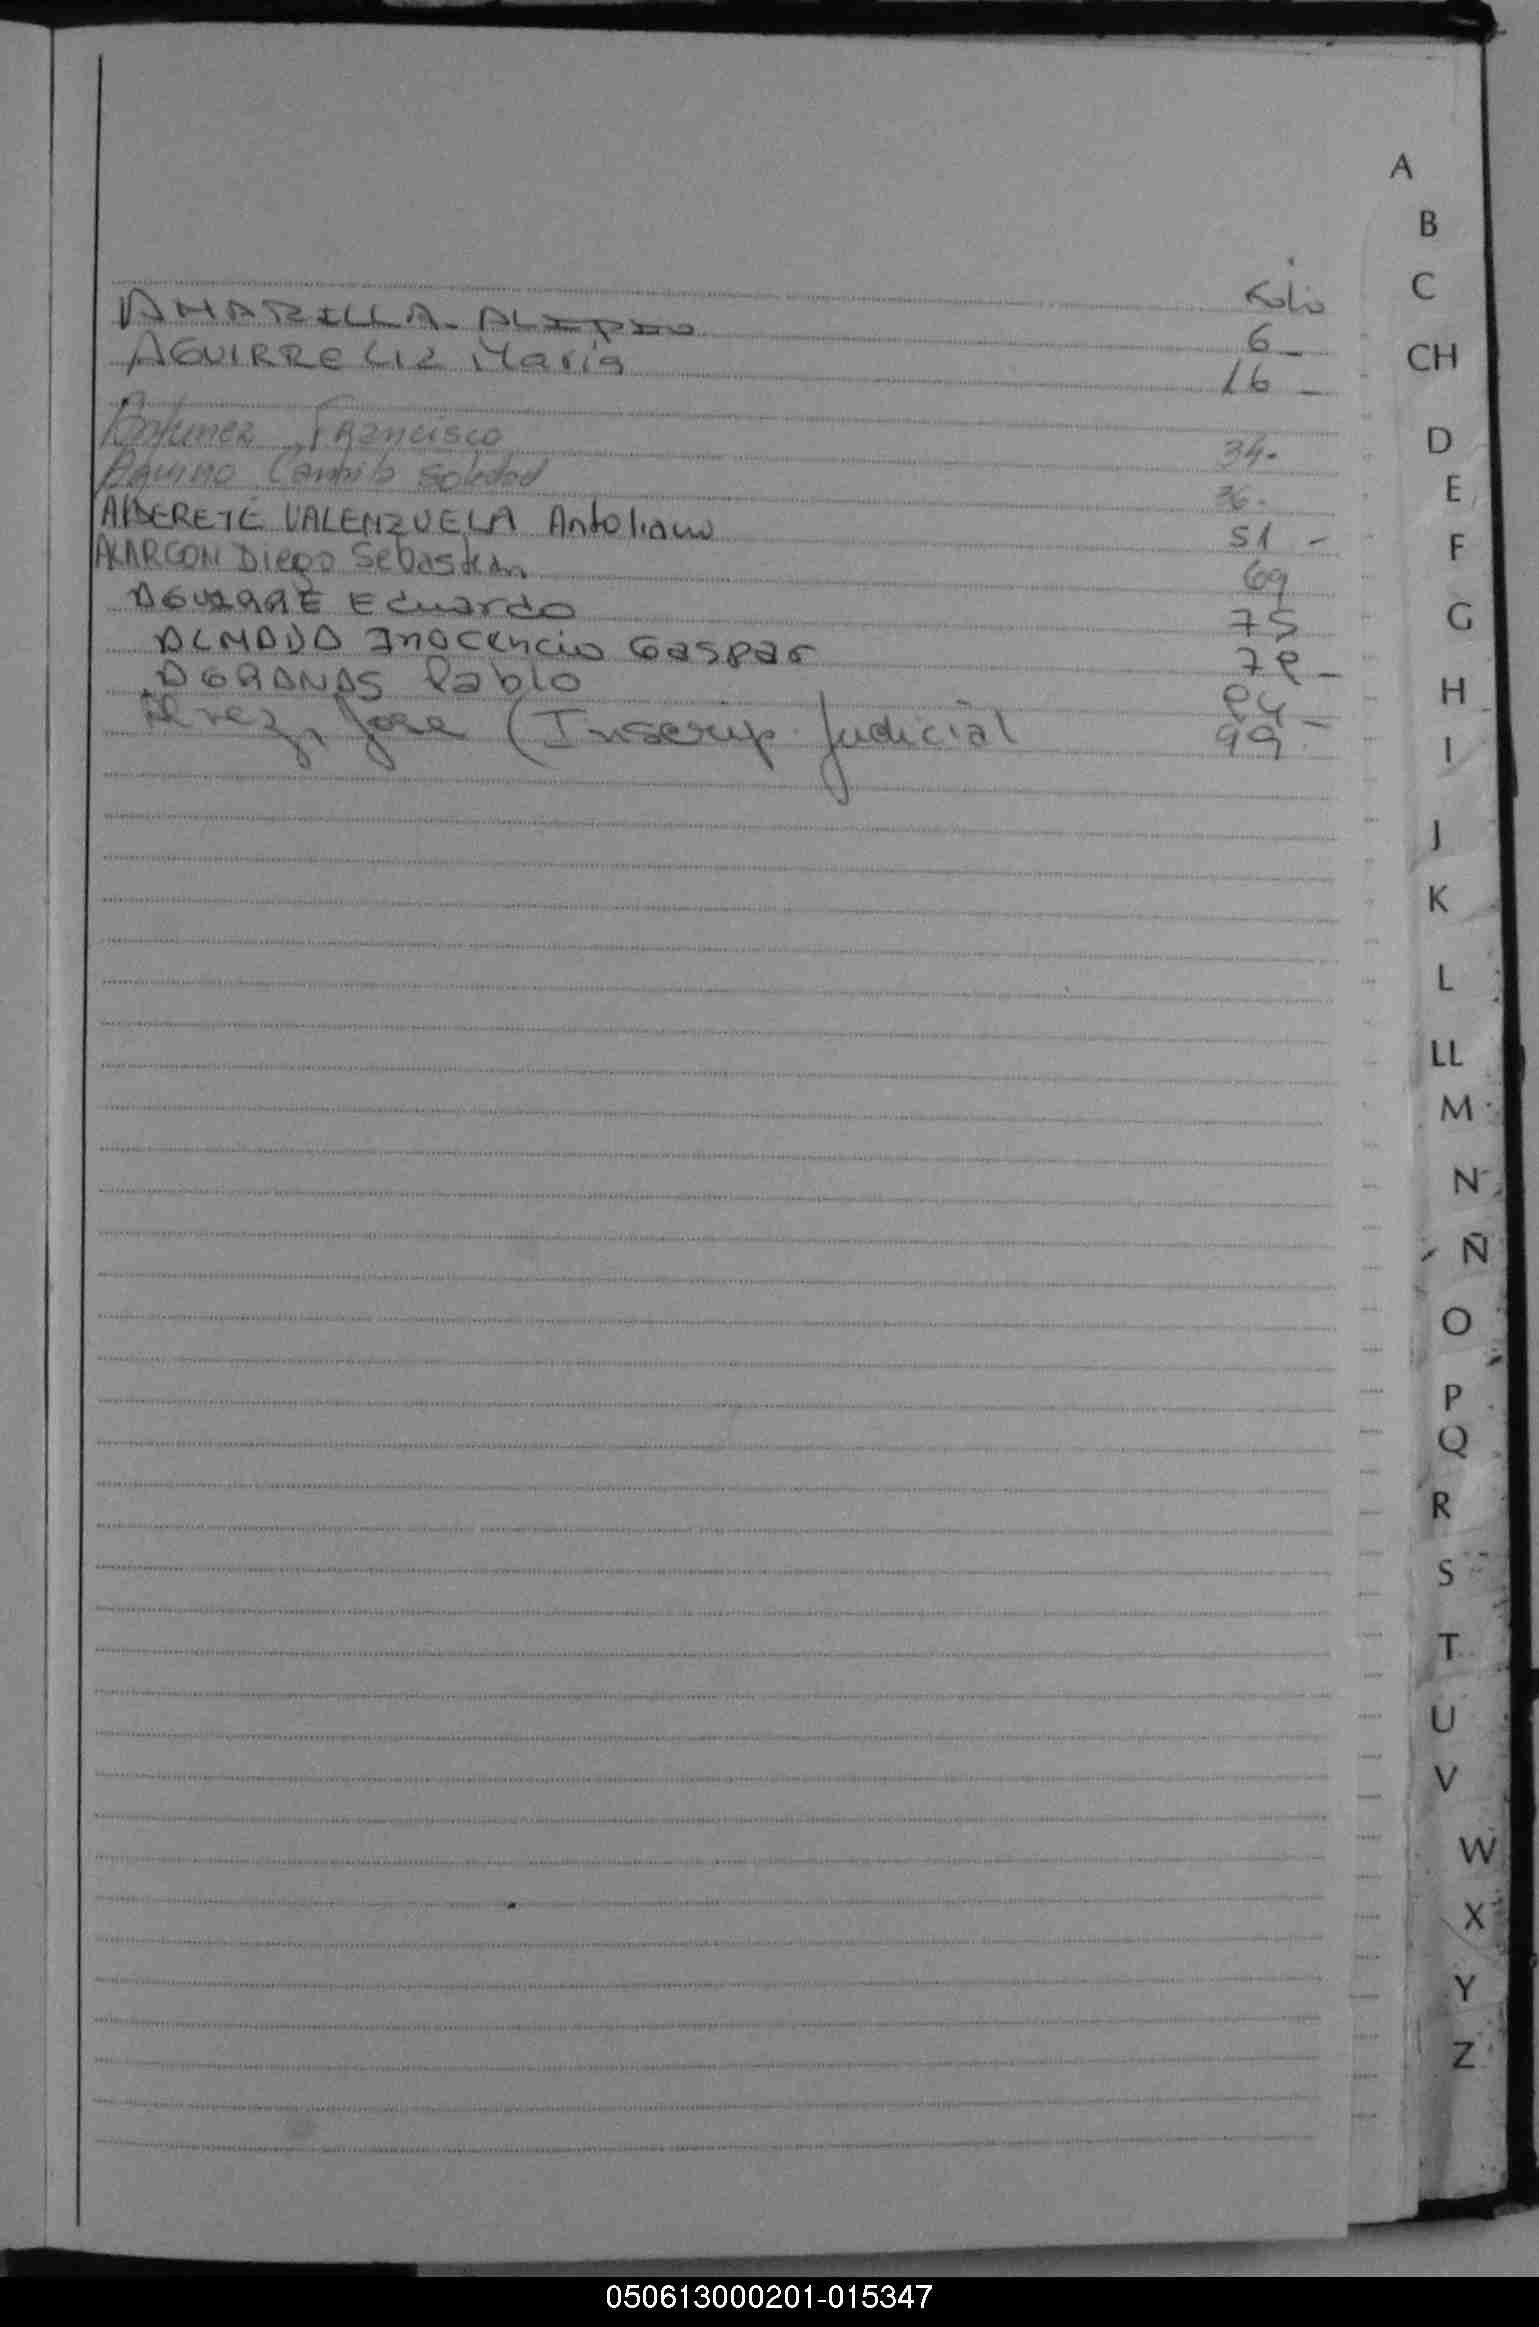 Folio
AMARILLA. ALIPIO 6-
AGUIRRE LIZ María 16-
Antunez Francisco 34-
Aquino Camila Soledad 36-
AlDERETE VALENZUELA Antoliano 51-
ALARCON Diego Sebastian 69
AGUIRRE Eduardo 75
ALMADA Inocencio Gaspar 78-
AGRANAS Pablo 84-
José (Inscrip. Judicial 99
A
B
C
CH
D
E
F
G
H
I
J
K
L
LL
M
N
Ñ
O
P
Q
R
S
T
U
V
W
X
Y
Z
050613000201-015347